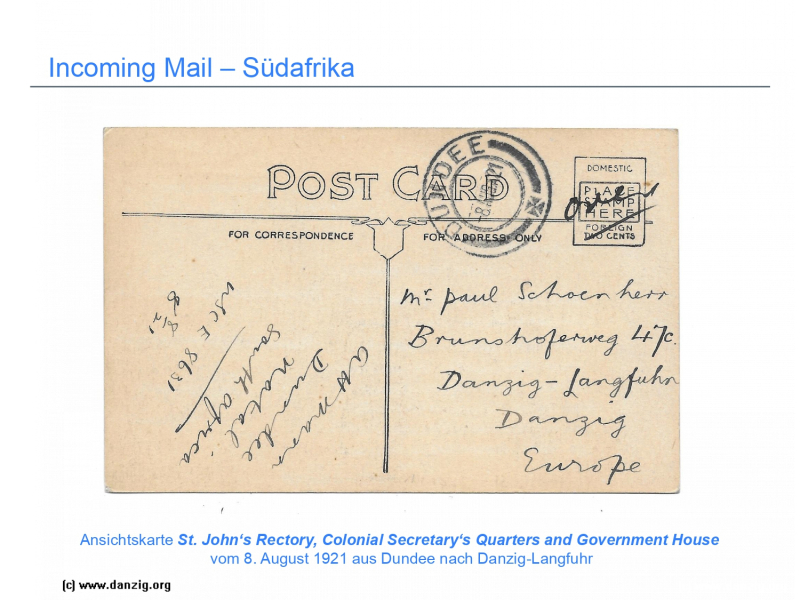 Incoming Mail – Südafrika
POST CARD
DUNDEE
8 AUG 21
DOMESTIC
PLACE
STAMP
HERE
FOREIGN
TWO CENTS
over
FOR CORRESPONDENCE
FOR ADDRESS ONLY
Mr paul Schoenherr
Brunshoferweg 47c.
Danzig-Langfuhr
Danzig
Europe
Dundee
Natal
South africa
8631
8/8/21
Ansichtskarte St. John‘s Rectory, Colonial Secretary‘s Quarters and Government House
vom 8. August 1921 aus Dundee nach Danzig-Langfuhr
(c) www.danzig.org